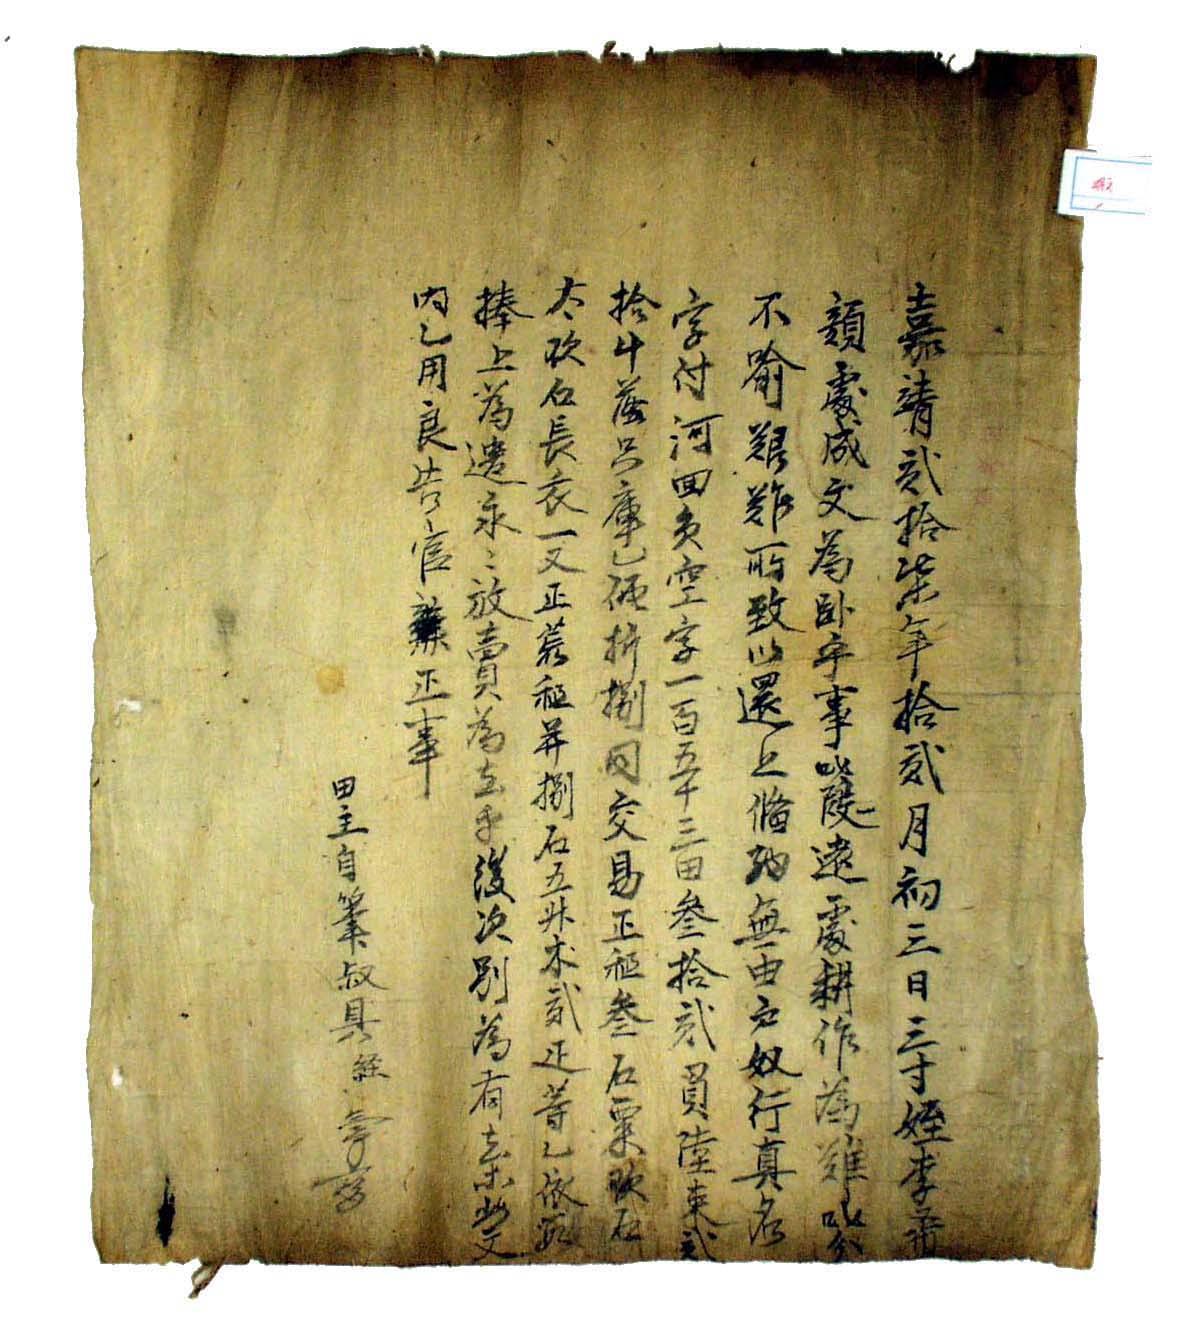 嘉靖貳拾柒年拾貳月初三日三寸姪李希
顔處成文爲臥乎事叱段遠處耕作爲難叱分
不喻艱難所致以還上備納無由戶奴行真名
字付河回員空字一百五十三田叄拾貳負陸束貳
拾斗落只庫乙價折捌同交易正租叄石粟貳石
太貳石長衣一又正荒租并捌石五升木貳疋等乙依數
捧上爲遣永永放賣爲去乎後次別爲有去乙等此文
內乙用良告官辨正事
田主自筆叔具